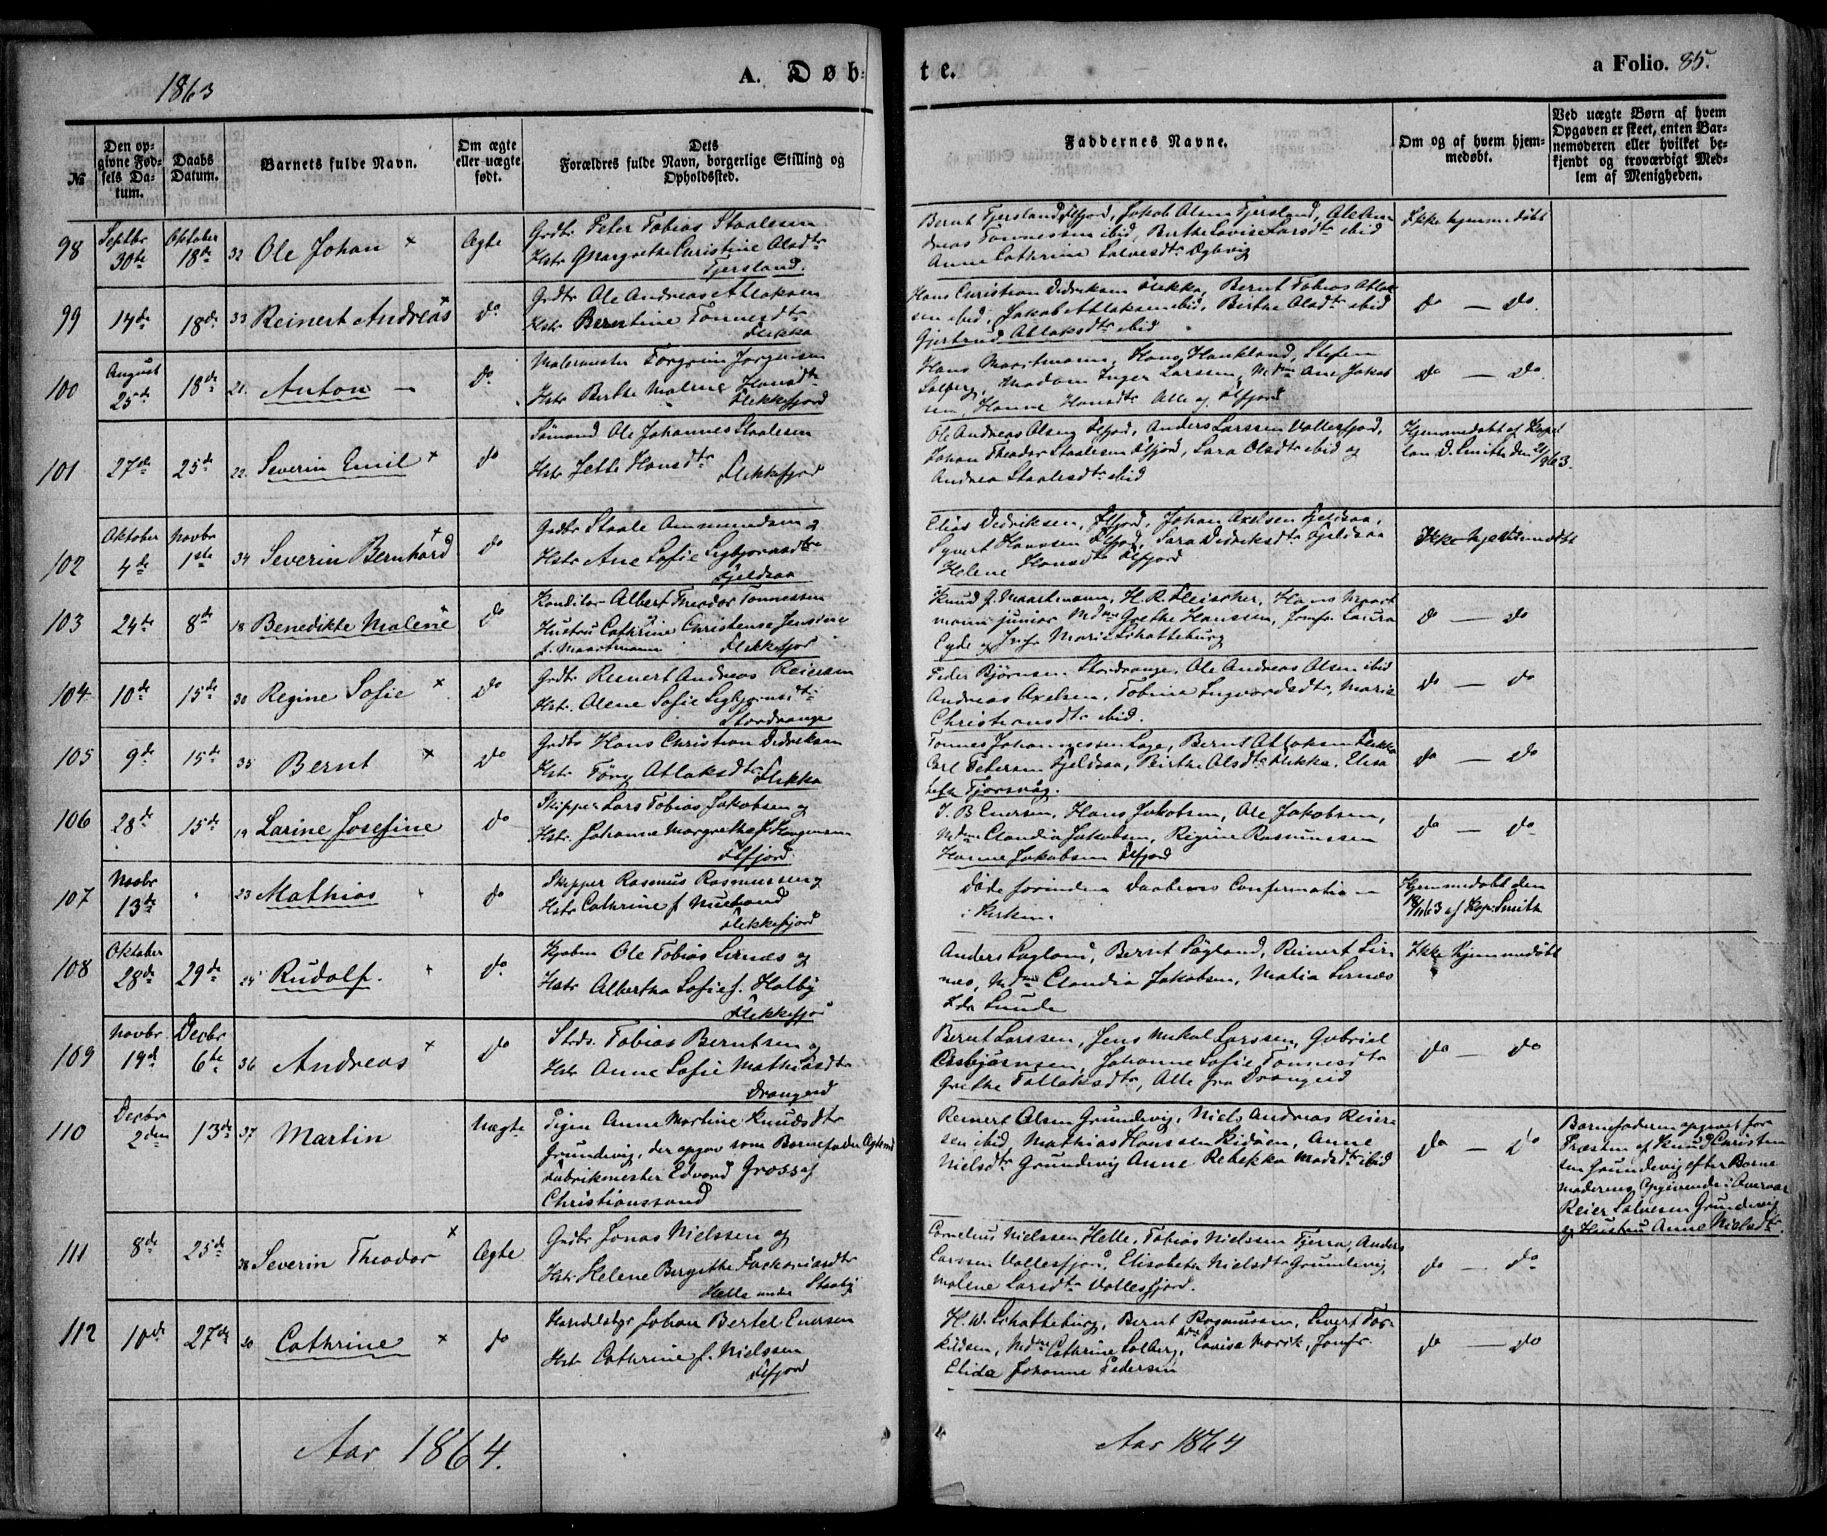 1863
A. Døb-
te.
a Folio. 85.
№
Den op-
givne Fød-
sels Da-
tum.
Daabs
Datum.
Barnets fulde Navn.
Om ægte
eller uægte
født.
Dets
Forældres fulde Navn, borgerlige Stilling og
Opholdssted.
Faddernes Navne.
Om og af hvem hjem-
medøbt.
Ved uægte Børn af hvem
Opgaven er skeet, enten Bar-
nemoderen eller hvilket be-
kjendt og troværdigt Med-
lem af Menigheden.
98
Septbr
30te
Oktober
18de
32 Ole Johan ×
Ægte
Grdbr Peter Tobias Staalesen
Hstr Margrethe Christine Olsdtr
Fjersland.
Bernt Fjersland Flfjord, Jakob Olsen Fjersland, Ole An-
dreas Tønnessen ibid, Birthe Lovise Larsdtr ibid
Anne Cathrine Salvesdtr Dybvig
Ikke hjemmedøbt
99
14de
18de
33 Reinert Andreas ×
do
Grdbr Ole Andreas Atlaksen
Hstr Berntine Tønnesdtr
Flikka
Hans Christian Didriksen Flikka, Bernt Tobias Atlak-
sen ibid, Jakob Atlaksen ibid, Birthe Olsdtr ibid
Gjertrud Atlaksdtr ibid
do — do.
100
August
25de
18de
21. Anton —
do
Malermester Torgrim Jørgensen
Hstr Berthe Malene Hansdtr
Flekkefjord
Hans Maartmann, Hans Haukland, Steffen
Solberg, Madam Inger Larssen, Mdm Ane Jakob-
sen, Hanne Hansdtr Alle af Flfjord
do — do.
101
27de
25de
22. Severin Emil ×
do
Sømand Ole Johannes Staalesen
Hstr Jette Hansdtr
Flekkefjord
Ole Andreas Olsen Flfjord, Anders Larssen Vollesfjord,
Johan Theodor Staalesen Flfjord, Sara Olsdtr ibid og
Andrea Staalesdtr ibid
Hjemmedøbt af Kapel-
lan D. Smith den 2/9 63.
102
Oktober
4de
Novbr
1ste
34 Severin Bernhard ×
do
Grdbr Staale Ammundsen og
Hstr Ane Sofie Sigbjørnsdtr
Fjeldsaa
Elias Didriksen, Flfjord, Johan Axelsen Fjeldsaa,
Syvert Hanssen Flfjord, Sara Didriksdtr Fjeldsaa
Helene Hansdtr Flfjord
Ikke hjemmedøbt
103
24de
8de
18 Benedikte Malene ×
do
Konditor Albert Theodor Tønnessen
Hustru Cathrine Christense Jensine
f. Maartmann Flekkefjor
Knud J. Maartmann, H. R. Fleischer, Hans Maart-
mann junior Mdm Grethe Hanssen, Jomfr. Laura
Eyde og Jmfr Marie Schatteburg
do — do
104
10de
15de
30 Regine Sofie ×
do
Grdbr Reinert Andreas Reiersen
Hstr. Olene Sofie Sigbjørnsdtr
Stordrange
Peder Bjørnsen Stordrange, Ole Andreas Olsen ibid
Andreas Axelsen, Tobine Ingvordsdtr, Marie
Christiansdtr ibid.
do — do
105
9de
15de
35 Bernt ×
do
Grdbr Hans Christian Didriksen
Hstr Tøry Atlaksdtr Flikka
Tønnes Johannessen Loge, Bernt Atlaksen Flikka
Carl Petersen Fjeldsaa, Birthe Olsdtr Flikka, Elisa-
beth Tjorsvåg.
do — do
106
28de
15de
19 Larine Josefine
do
Skipper Lars Tobias Jakobsen og
Hstr. Johanne Margrethe f. Jørgensen
Flfjord.
J. B Enersen, Hans Jakobsen, Ole Jakobsen,
Mdm Claudia Jakobsen, Regine Rasmussen
Hanne Jakobsen Flfjord
do — do
107
Novbr
13de
23 Mathias
do
Skipper Rasmus Rasmussen og
Hstr Cathrine f.
Flekkefjord
Døde forinden Daabens Confirmation
i Kirken.
Hjemmedøbt den
18/11 63 af Kap: Smith
108
Oktober
28de
29de
24 Rudolf.
do
Kjøbm Ole Tobias Sirnæs og
Hstr Albertha Sofie f. Holby
Flekkefjor
Anders Søgland, Bernt Søgland, Reinert Sir-
næs, Mdm Claudia Jakobsen, Matia Sirnæs
Ida Lunde
Ikke hjemmedøbt
109
Novbr
19de
Decbr
6te
36 Andreas ×
do
Tobias Berntsen og
Hstr Anne Sofie Mathiasdtr
Drangeid
Bernt Larssen, Jens Mikal Larssen, Gabriel
Asbjørnsen, Johanne Sofie Tønnesdtr
Grethe Tollaksdtr, Alle fra Drangeid
do — do
110
Decbr
2den
13de
37 Martin
Uægte
Pigen Anne Martine Knudsdtr
Grundevig, der opgav som Barnefader
Fabrikmester Edvard Gross af
Christianssand
Reinert Olsen Grundevig, Niels Andreas Reier-
sen ibid, Mathias Hanssen Kidøen, Anne
Nielsdtr Grundevig Anne Rebekka Madsdtr ibid
do — do
Barnefaderen opgivet for
Præsten af Knud Christen-
sen Grundevig efter Barne-
moderens Opgivende i Overvær
Reier Salvesen Grundevig
og Hustru Anne Nielsdtr.
111
8de
25de
38 Severin Theodor ×
Ægte
Grdbr Jonas Nielssen og
Hstr Helene Birgitte Zachariasdtr
Helle under Staaby
Cornelius Nielssen Helle, Tobias Nielssen Fjerra, Anders
Larssen Vollesfjord, Elisabeth Nielsdtr Grundevig
Malene Larsdtr Vollesfjord.
do — do
112
10de
27de
20 Cathrine ×
do
Handelsbgr Johan Bertel Enersen
Hstr Cathrine f. Nielssen
Flfjord
H. W. Schatteburg, Bernt Rasmussen, Sivert Tor-
kildsen, Mdm Cathrine Solberg, Mdm Lovise Marik, Jomfr
Elida Johanne Pedersen
do — do
Aar 1864.
Aar 1864